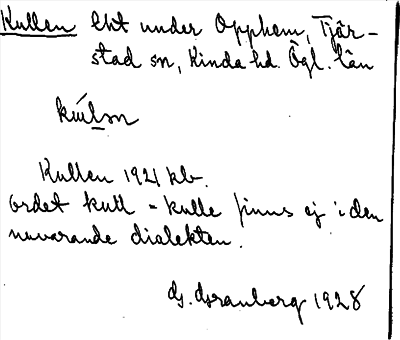 Kullen lht under Opphem, Tjär-
stad sn, Kinda hd. Ögl. län
Kullen 1921 kb.
ordet kull = kulle finns ej i den
nuvarande dialekten.
G. Granberg 1928